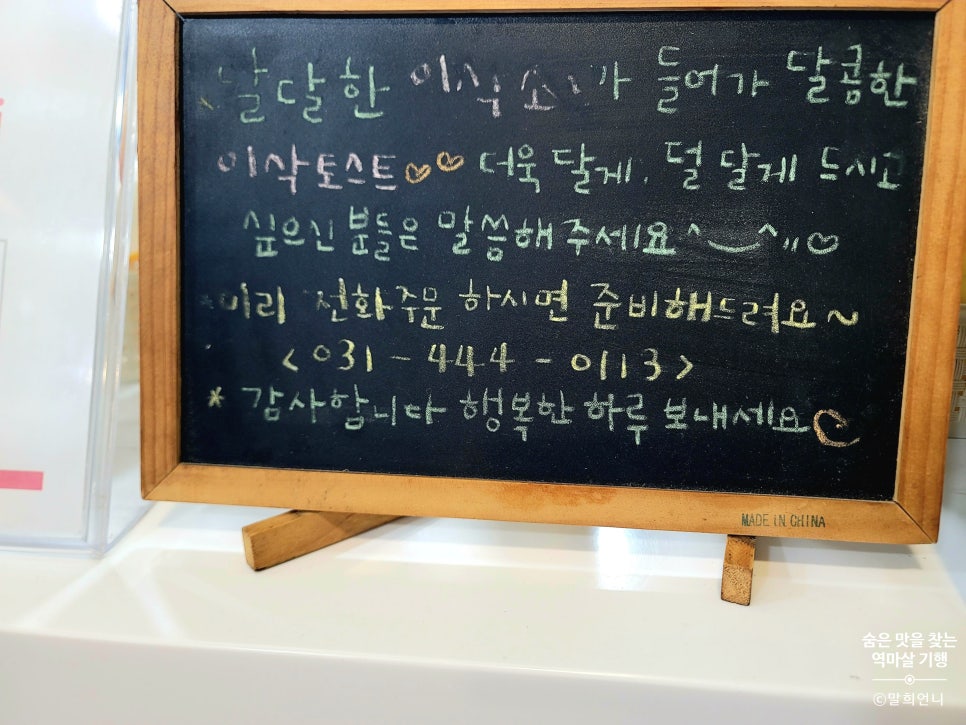 * 달달한 이삭소스가 들어가 달콤한
이삭토스트♡♡ 더욱 달게, 덜 달게 드시고
싶으신 분들은 말씀해주세요^‿^"♡
*미리 전화주문 하시면 준비해드려요~
<031-444-0113>
* 감사합니다 행복한 하루 보내세요♡
MADE IN CHINA
숨은 맛을 찾는
역마살 기행
©말희언니